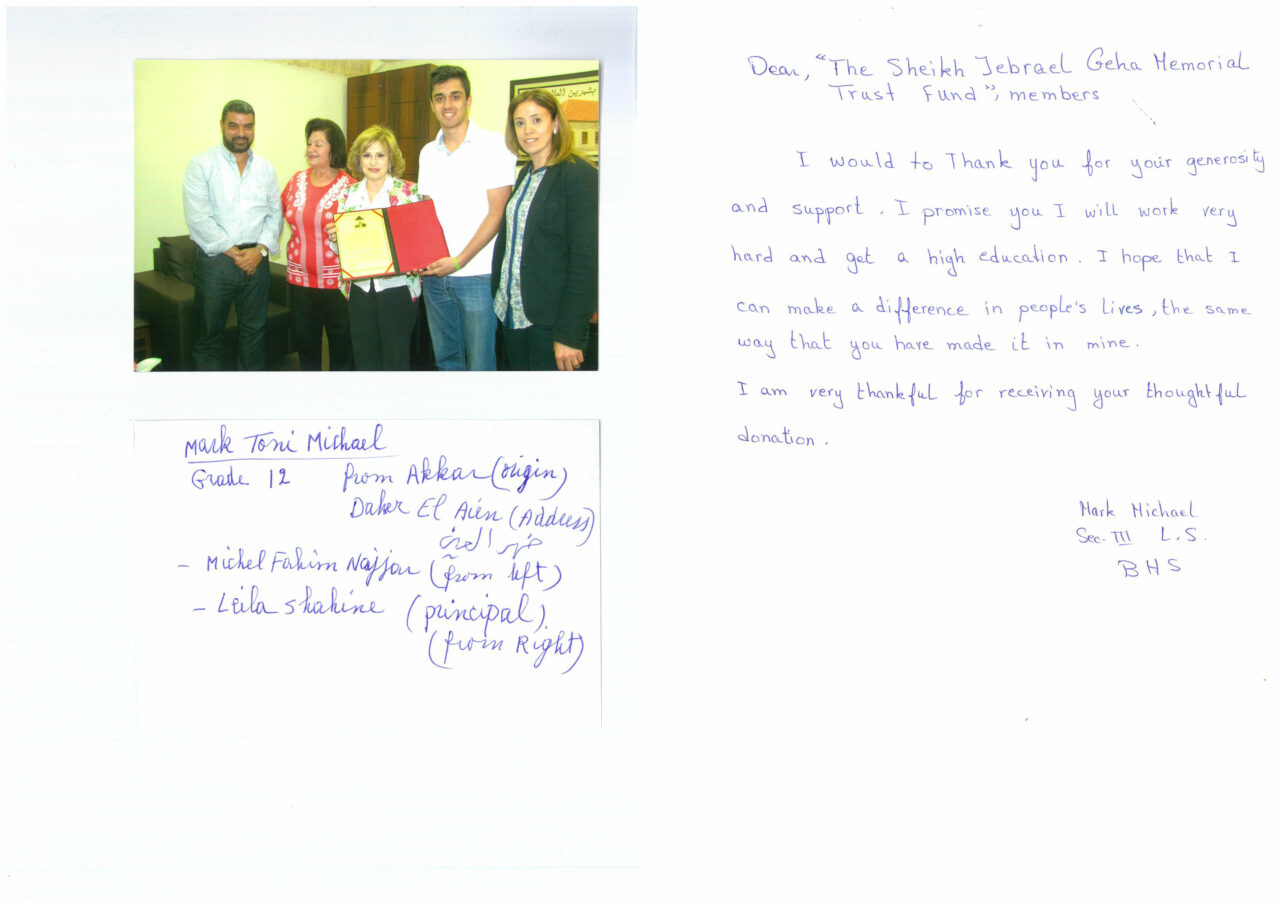 بشهرين العال
Mark Toni Michael
Grade 12 from Akkar (origin)
Daher El Aién (Address)
ضهر العين
- Michel Fahim Najjar (from left)
- Leila Shahine (principal)
(from Right)
Dear, "The Sheikh Jebrael Geha Memorial
Trust Fund", members
I would to Thank you for your generosity
and support. I promise you I will work very
hard and get a high education. I hope that I
can make a difference in people's lives, the same
way that you have made it in mine.
I am very thankful for receiving your thoughtful
donation.
Mark Michael
Sec. III L.S.
BHS